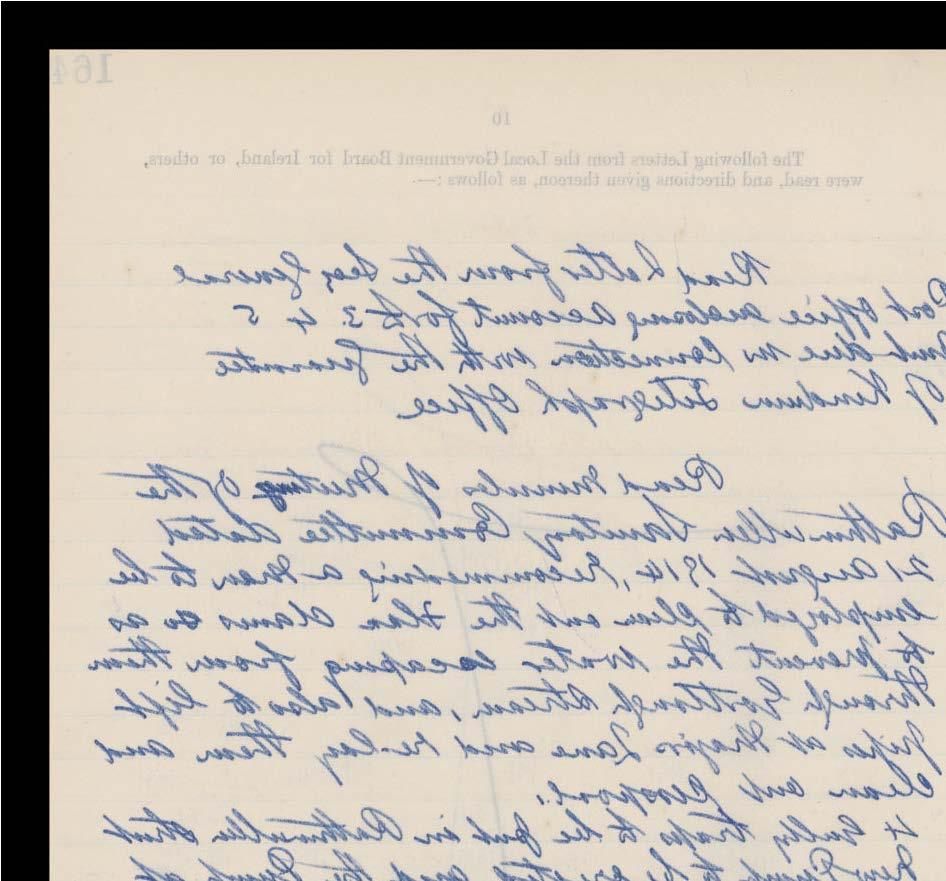 164
10
The following Letters from the Local Government Board for Ireland, or others,
were read, and directions given thereon, as follows:—
Read Letter from the Secy General
Post Office enclosing account for £3. 4 5
due in Connection with the Guarantee
of Kindrum Telegraph Office
Read minutes of Meeting of the
Rathmullan Sanitary Committee dated
21 August 1914, Recommending a man to be
employed to clean out the dams so as
to prevent the water escaping from them
through stream, and also to lift
pipes at Major Lane and re-lay them and
clean out
4 Gully traps to be put in Rathmullan